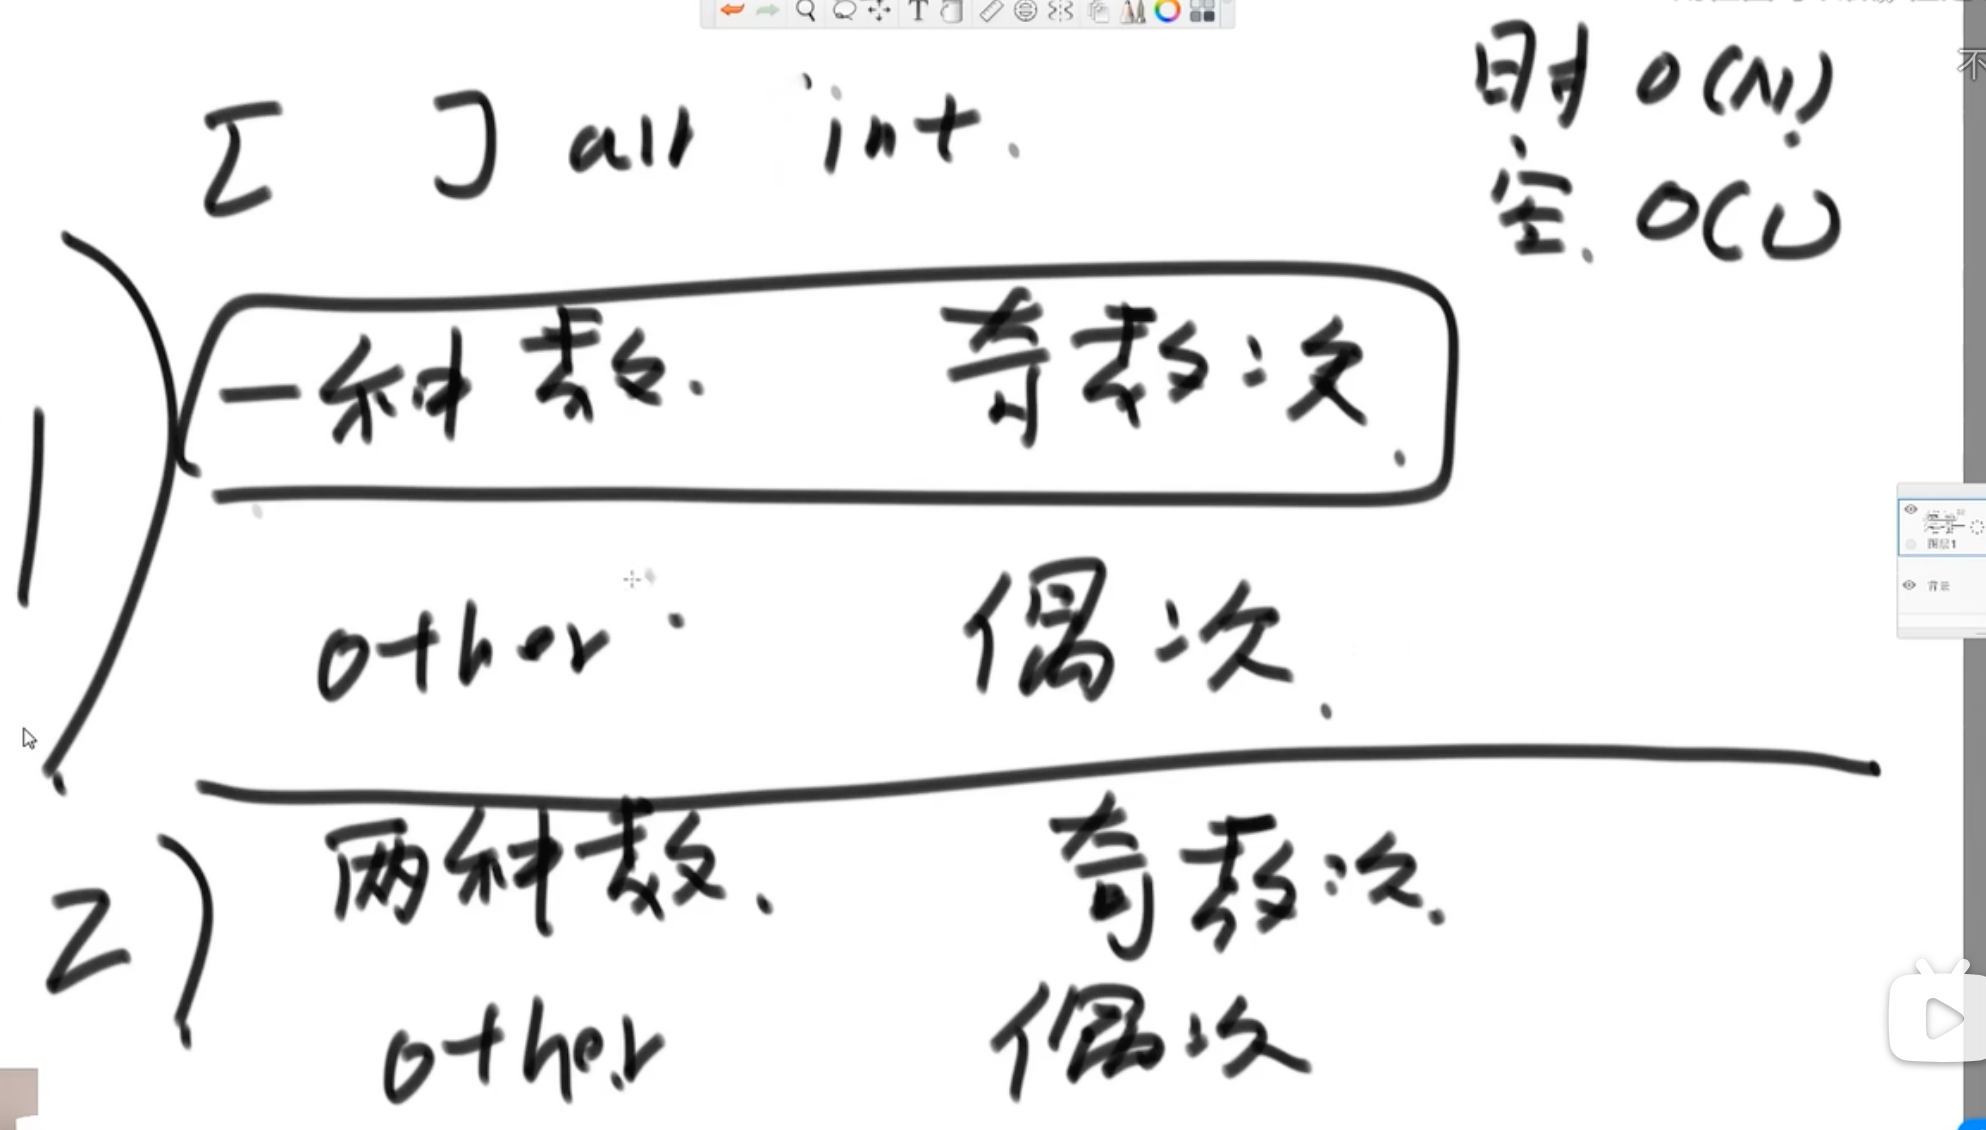 [ ] all int.
时 O(N)
空 O(1)
1) 一种数. 奇数次.
other. 偶次.
2) 两种数. 奇数次.
other 偶次
图层1
背景
不